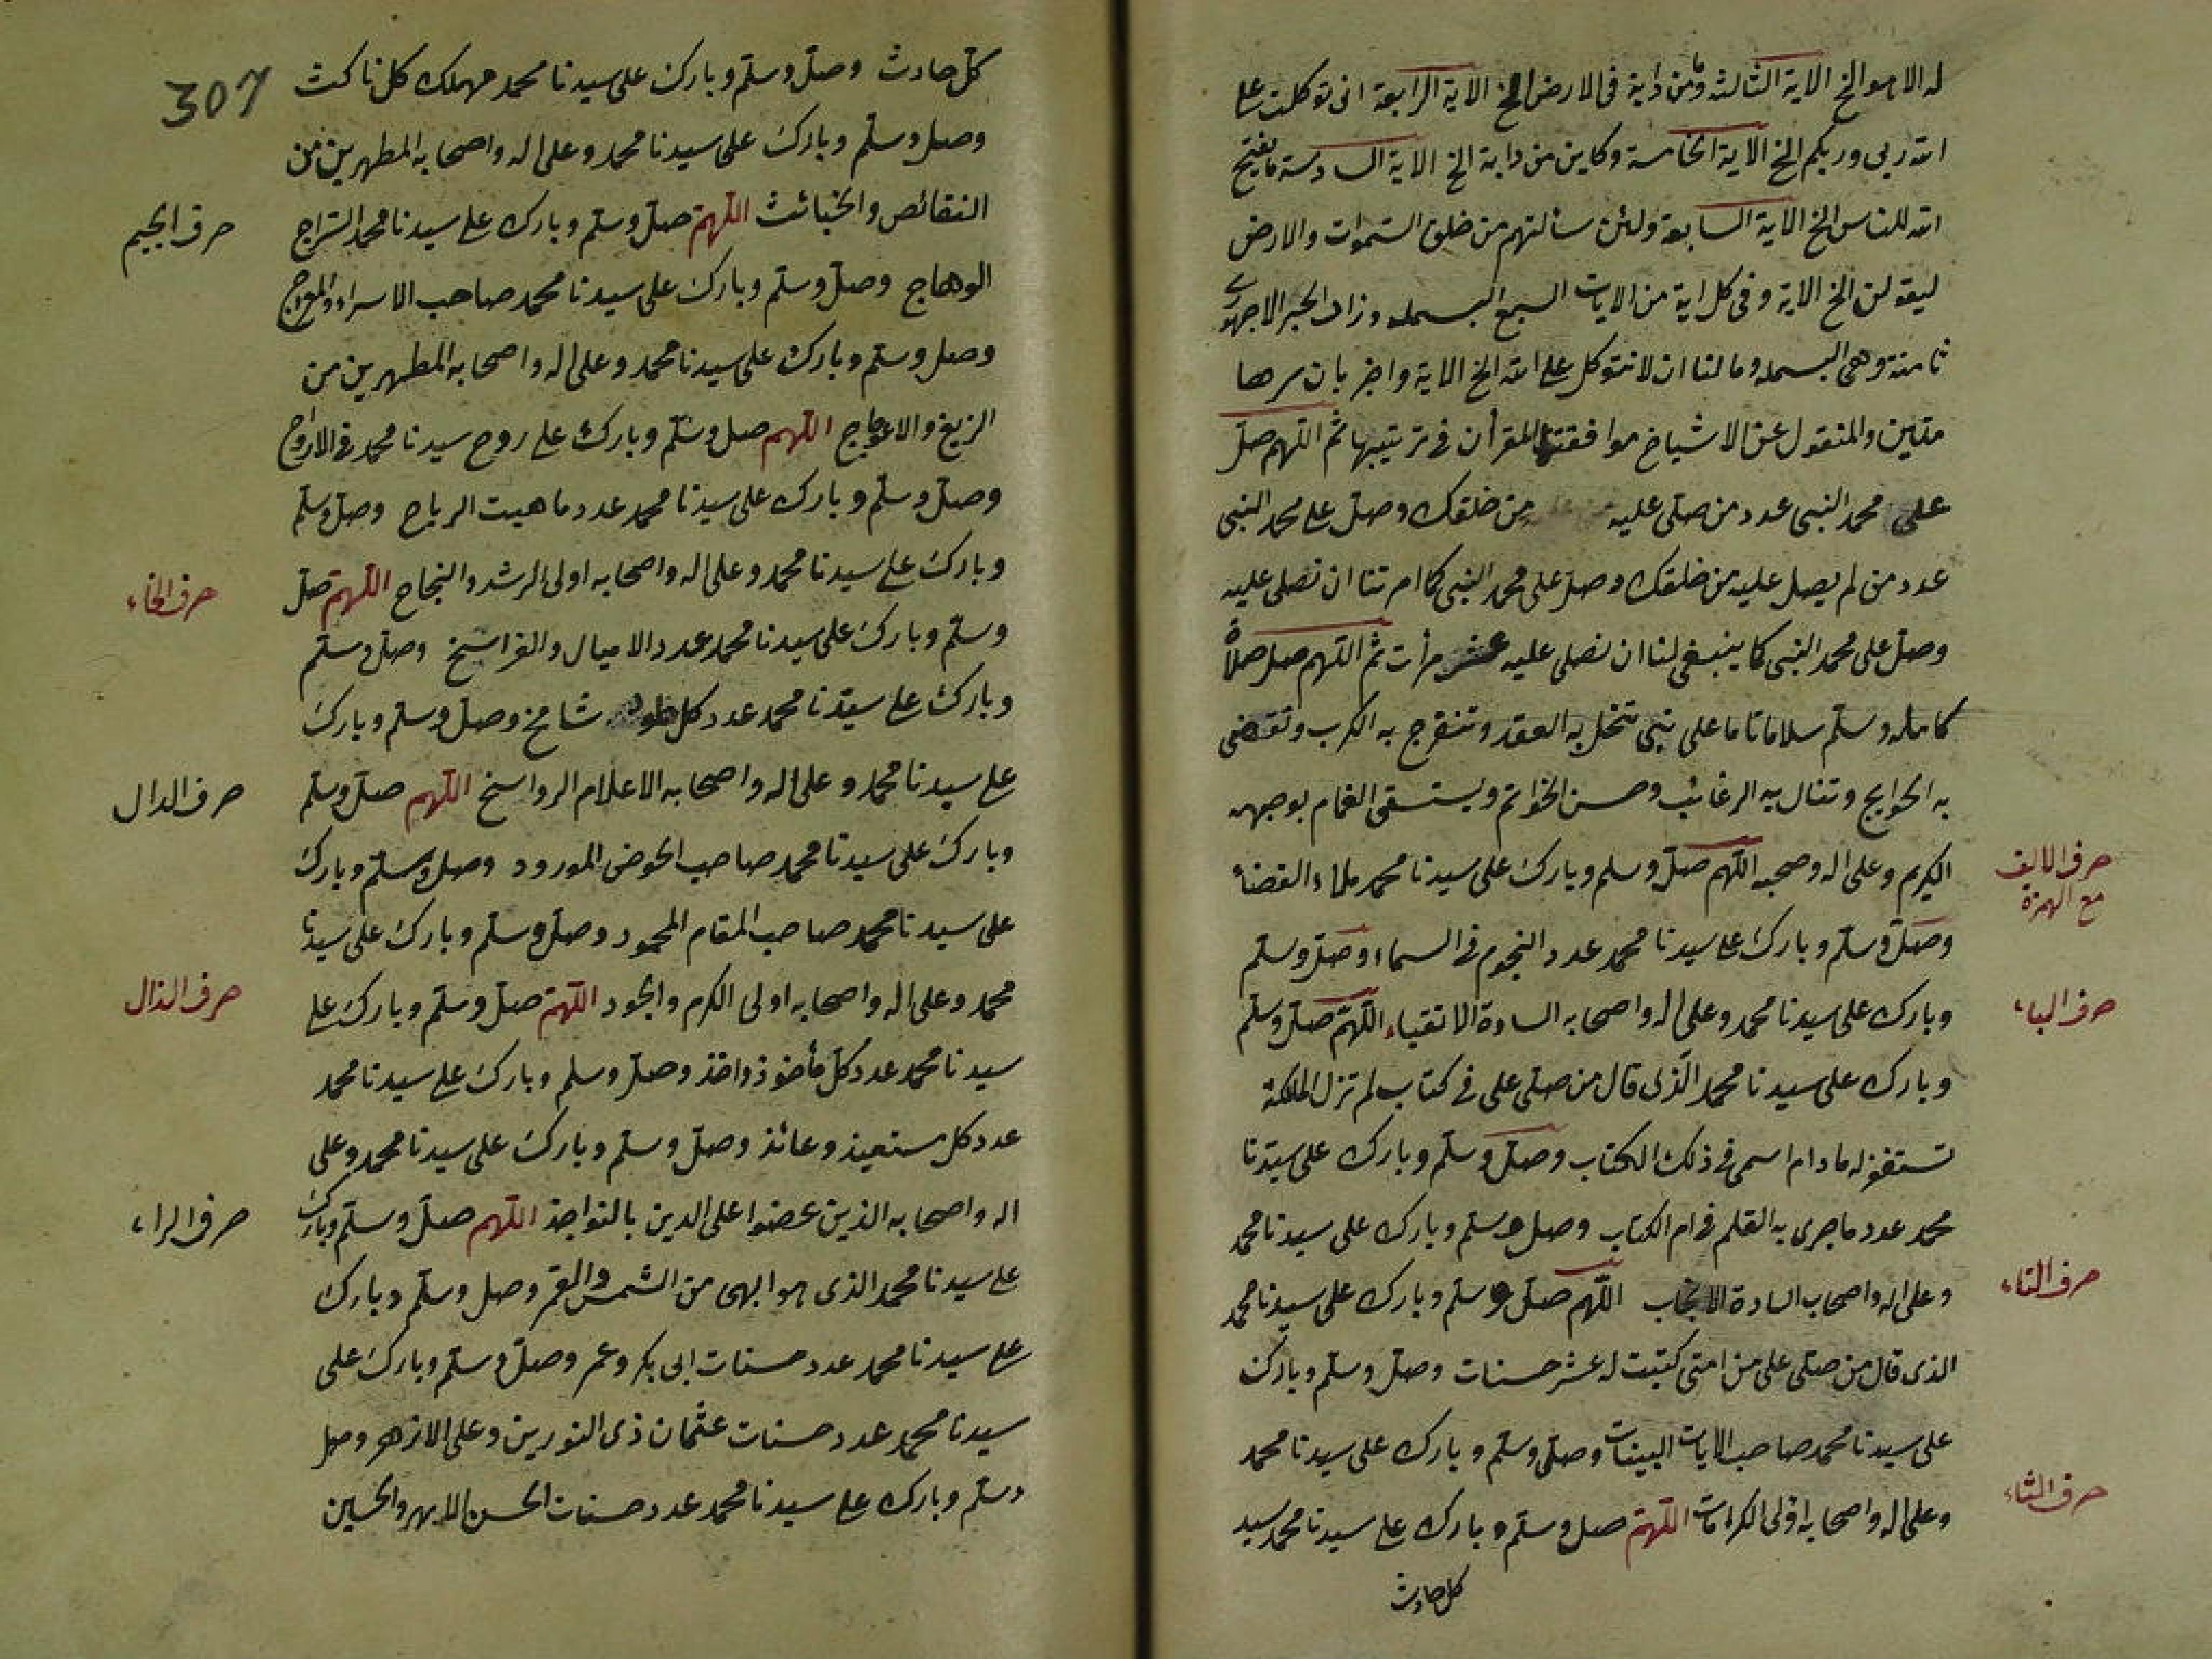 له الا هو الخ الاية الثالثة وما من دابة فى الارض الخ الاية الرابعة انى توكلت على
الله ربى وربكم الخ الاية الخامسة وكاين من دابة الخ الاية السادسة ما يفتح
الله للناس الخ الاية السابعة ولئن سالتهم من خلق السموات والارض
ليقولن الخ الاية وفى كل اية من الايات السبع البسمله وزاد الحبر الاجهورى
ثامنة وهى البسمله وما لنا ان لا نتوكل على الله الخ الاية واخبر بان سرها
متين والمنقول عن الاشياخ موافقتها القرأن فى ترتيبها ثم اللهم صل
على محمد النبى عدد من صلى عليه من خلقك وصل على محمد النبى
عدد من لم يصل عليه من خلقك وصل على محمد النبى كما امرتنا ان نصلى عليه
وصل على محمد النبى كما ينبغى لنا ان نصلى عليه عشر مرأت ثم اللهم صل صلاة
كامله وسلم سلاما تاما على نبى تنحل به العقد وتنفرج به الكرب وتقضى
به الحوايج وتنال به الرغائب وحسن الخواتم ويستسقى الغمام بوجهه
الكريم وعلى اله وصحبه اللهم صل وسلم وبارك على سيدنا محمد ملاء الفضاء
حرف الالف
مع الهمزة
وصل وسلم وبارك على سيدنا محمد عدد النجوم فى السماء وصل وسلم
وبارك على سيدنا محمد وعلى اله واصحابه السادة الاتقياء اللهم صل وسلم
حرف الباء
وبارك على سيدنا محمد الذى قال من صلى على فى كتاب لم تزل الملئكة
تستغفر له ما دام اسمى فى ذلك الكتاب وصل وسلم وبارك على سيدنا
محمد عدد ما جرى به القلم فى ام الكتاب وصل وسلم وبارك على سيدنا محمد
وعلى اله واصحاب السادة الانجاب اللهم صل وسلم وبارك على سيدنا محمد
حرف التاء
الذى قال من صلى على من امتى كتبت له عشر حسنات وصل وسلم وبارك
على سيدنا محمد صاحب الايات البينات وصلى وسلم وبارك على سيدنا محمد
وعلى اله واصحابه اولى الكرامات اللهم صل وسلم وبارك على سيدنا محمد سيد
حرف الثاء
كل حادث
307
كل حادث وصل وسلم وبارك على سيدنا محمد مهلك كل ناكث
وصل وسلم وبارك على سيدنا محمد وعلى اله واصحابه المطهرين من
النقائص والخبائث اللهم صل وسلم وبارك على سيدنا محمد السراج
حرف الجيم
الوهاج وصل وسلم وبارك على سيدنا محمد صاحب الاسراء والمعراج
وصل وسلم وبارك على سيدنا محمد وعلى اله واصحابه المطهرين من
الزيغ والاعوجاج اللهم صل وسلم وبارك على روح سيدنا محمد فى الارواح
وصل وسلم وبارك على سيدنا محمد عدد ما هبت الرياح وصل وسلم
وبارك على سيدنا محمد وعلى اله واصحابه اولى الرشد والنجاح اللهم صل
حرف الخاء
وسلم وبارك على سيدنا محمد عدد الاميال والفراسخ وصل وسلم
وبارك على سيدنا محمد عدد كل طود شامخ وصل وسلم وبارك
على سيدنا محمد وعلى اله واصحابه الاعلام الرواسخ اللهم صل وسلم
حرف الدال
وبارك على سيدنا محمد صاحب الحوض المورود وصل وسلم وبارك
على سيدنا محمد صاحب المقام المحمود وصل وسلم وبارك على سيدنا
محمد وعلى اله واصحابه اولى الكرم والجود اللهم صل وسلم وبارك على
حرف الذال
سيدنا محمد عدد كل مأخوذ واخذ وصل وسلم وبارك على سيدنا محمد
عدد كل مستعيذ وعائذ وصل وسلم وبارك على سيدنا محمد وعلى
اله واصحابه الذين عضوا على الدين بالنواجذ اللهم صل وسلم وبارك
حرف الراء
على سيدنا محمد الذى هو ابهى من الشمس والقمر وصل وسلم وبارك
على سيدنا محمد عدد حسنات ابى بكر وعمر وصل وسلم وبارك على
سيدنا محمد عدد حسنات عثمان ذى النورين وعلى الازهر وصل
وسلم وبارك على سيدنا محمد عدد حسنات الحسن الابهر والحسين